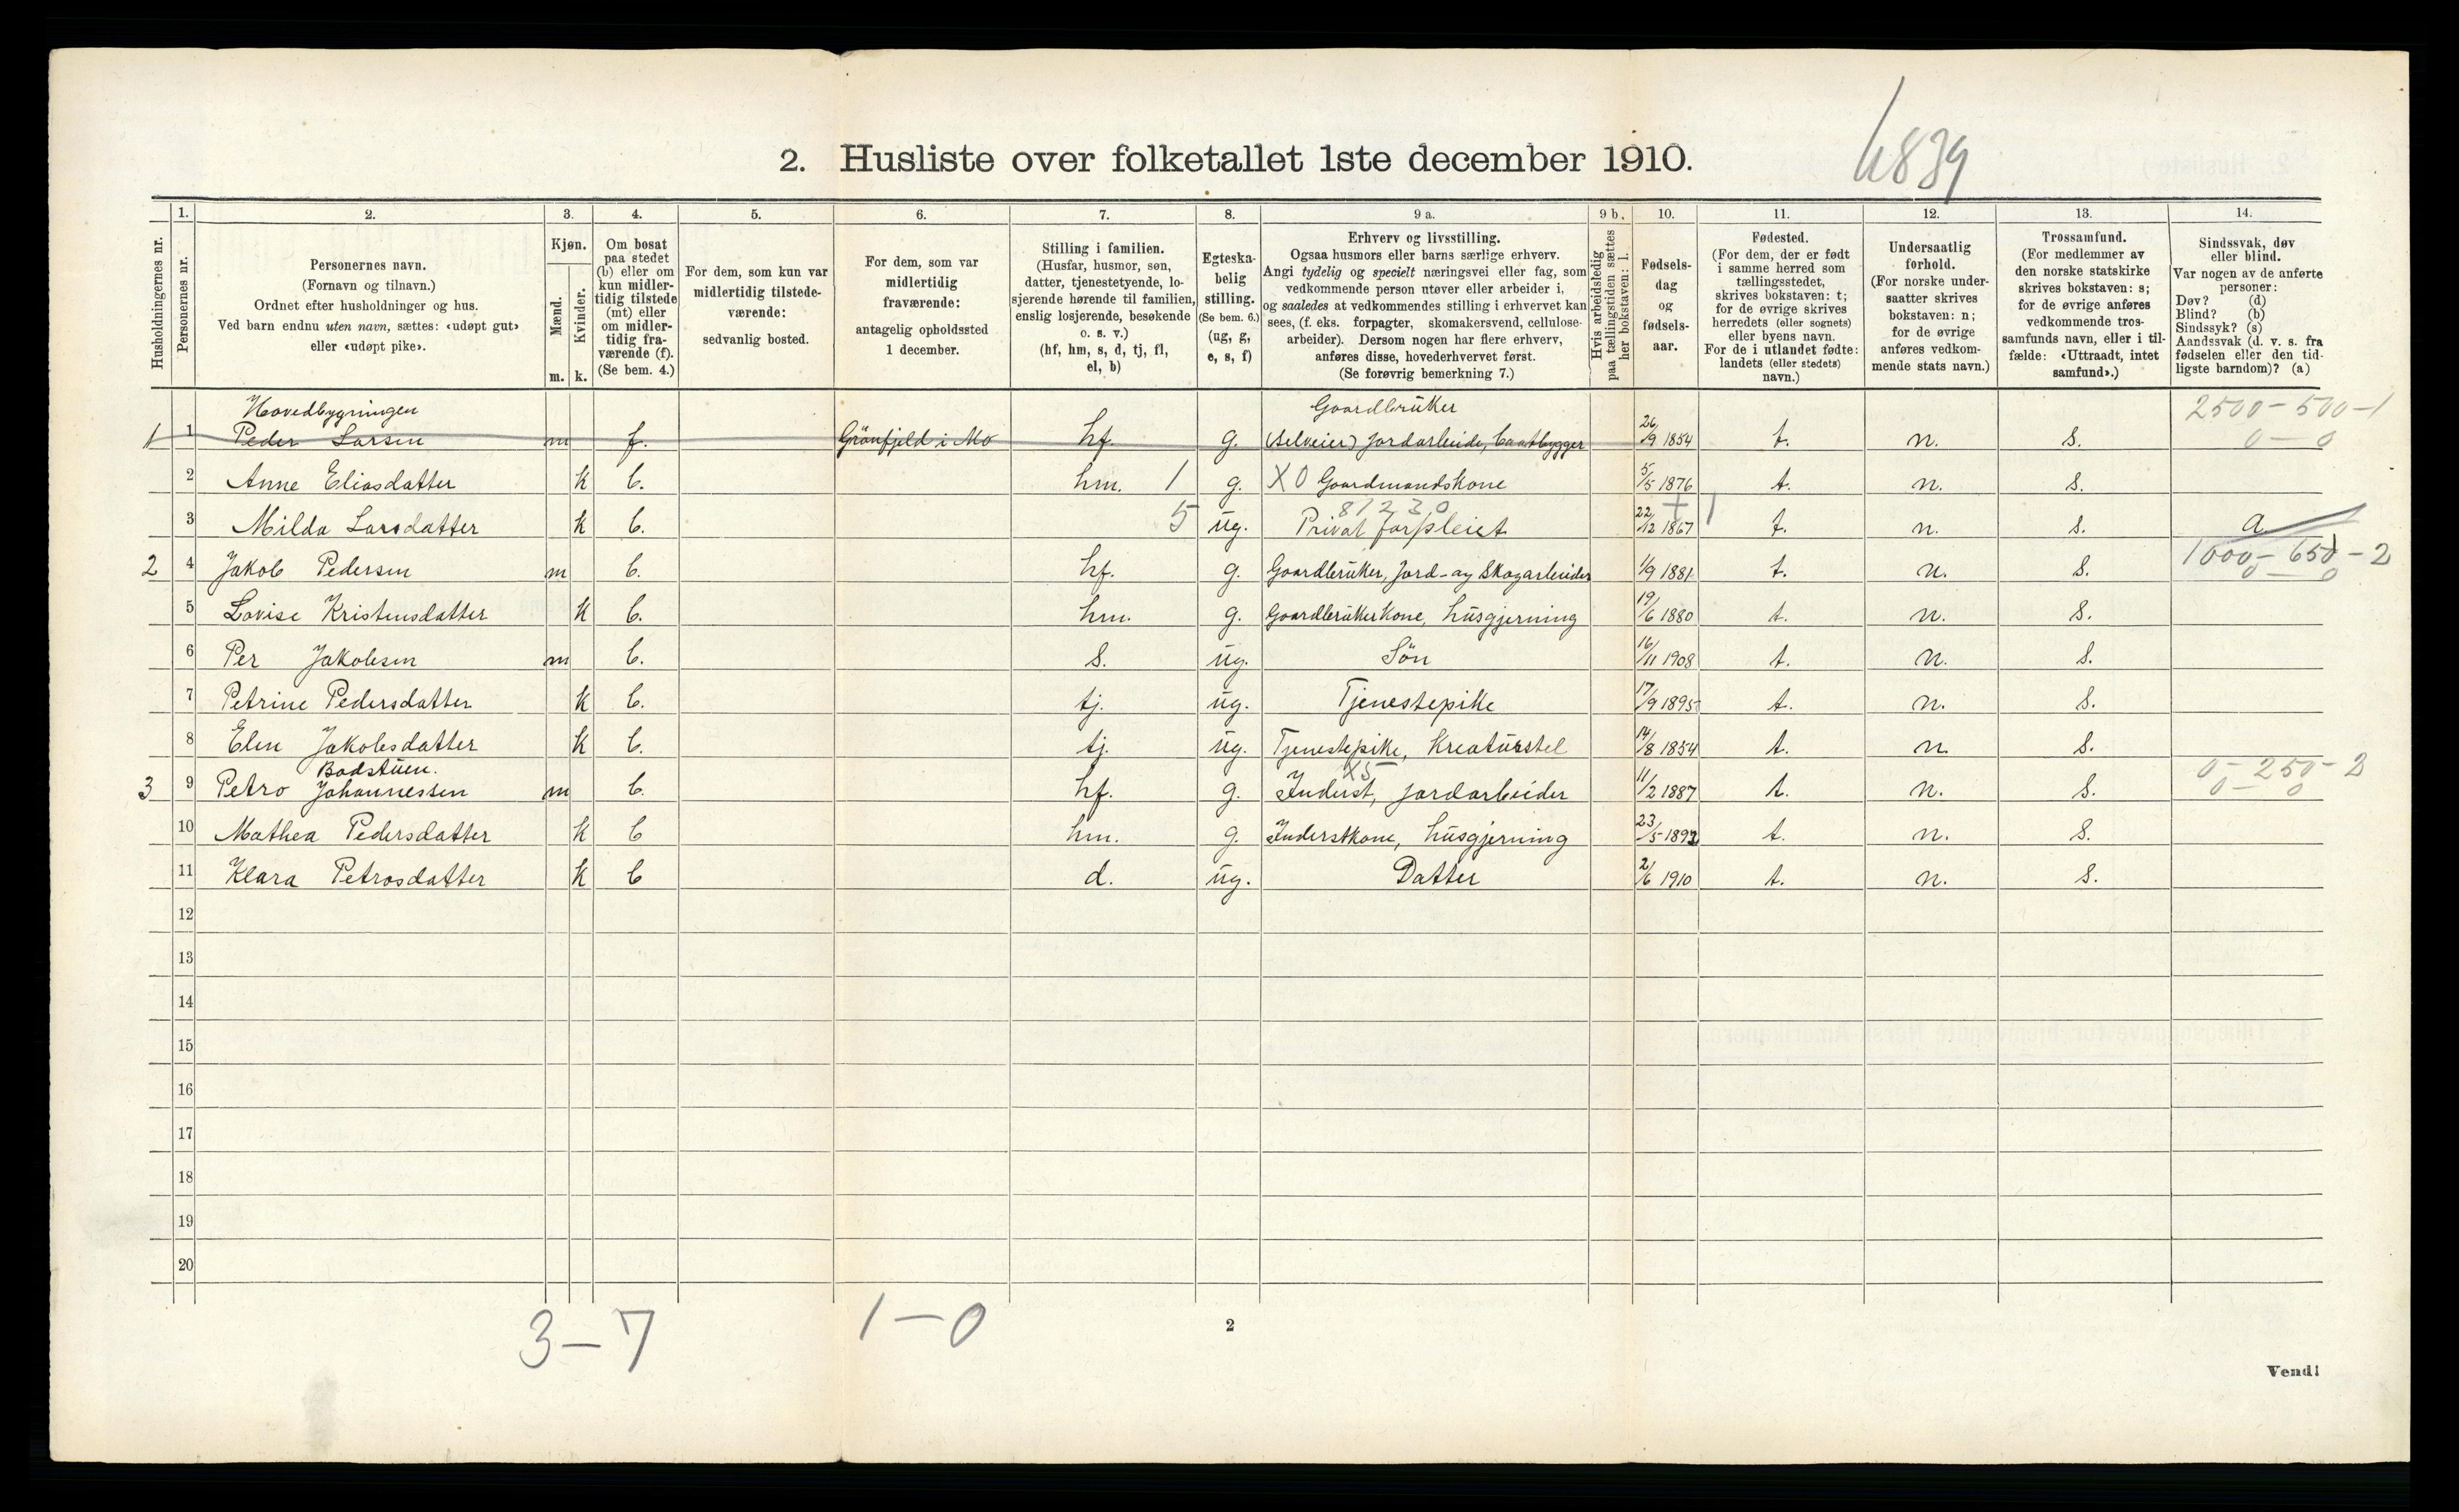 2. Husliste over folketallet 1ste december 1910.
4839
Husholdningernes nr.
1.
Personernes nr.
2.
Personernes navn.
(Fornavn og tilnavn.)
Ordnet efter husholdninger og hus.
Ved barn endnu uten navn, sættes: «udøpt gut»
eller «udøpt pike».
3.
Kjøn.
Mænd.
Kvinder.
m. k.
4.
Om bosat
paa stedet
(b) eller om
kun midler-
tidig tilstede
(mt) eller
om midler-
tidig fra-
værende (f).
(Se bem. 4.)
5.
For dem, som kun var
midlertidig tilstede-
værende:
sedvanlig bosted.
6.
For dem, som var
midlertidig
fraværende:
antagelig opholdssted
1 december.
7.
Stilling i familien.
(Husfar, husmor, søn,
datter, tjenestetyende, lo-
sjerende hørende til familien,
enslig losjerende, besøkende
o. s. v.)
(hf, hm, s, d, tj, fl,
el, b)
8.
Egteska-
belig
stilling.
(Se bem. 6.)
(ug, g,
e, s, f)
9 a.
Erhverv og livsstilling.
Ogsaa husmors eller barns særlige erhverv.
Angi tydelig og specielt næringsvei eller fag, som
vedkommende person utøver eller arbeider i,
og saaledes at vedkommendes stilling i erhvervet kan
sees, (f. eks. forpagter, skomakersvend, cellulose-
arbeider). Dersom nogen har flere erhverv,
anføres disse, hovederhvervet først.
(Se forøvrig bemerkning 7.)
9 b.
Hvis arbeidsledig
paa tællingstiden sættes
her bokstaven: l.
10.
Fødsels-
dag
og
fødsels-
aar.
11.
Fødested.
(For dem, der er født
i samme herred som
tællingsstedet,
skrives bokstaven: t;
for de øvrige skrives
herredets (eller sognets)
eller byens navn.
For de i utlandet fødte:
landets (eller stedets)
navn.)
12.
Undersaatlig
forhold.
(For norske under-
saatter skrives
bokstaven: n;
for de øvrige
anføres vedkom-
mende stats navn.)
13.
Trossamfund.
(For medlemmer av
den norske statskirke
skrives bokstaven: s;
for de øvrige anføres
vedkommende tros-
samfunds navn, eller i til-
fælde: «Uttraadt, intet
samfund».)
14.
Sindssvak, døv
eller blind.
Var nogen av de anførte
personer:
Døv? (d)
Blind? (b)
Sindssyk? (s)
Aandssvak (d. v. s. fra
fødselen eller den tid-
ligste barndom)? (a)
Hovedbygningen Gaardbruker 2500-500-1
1 1 Peder Larsen m f. Grönfjeld i Mo hf. g. (selveier) jordarbeide, baatbygger 26/9 1854 t. n. s. 0-0
2 Anne Eliasdatter k b. hm. 1 g. X0 Gaardmandskone 5/5 1876 t. n. s.
81230
3 Milda Larsdatter k b. 5 ug. Privat forpleiet 22/12 1867 t. n. s. a
1000-650-2
2 4 Jakob Pedersen m b. hf. g. Gaardbruker, Jord- og Skogarbeider 1/9 1881 t. n. s. 0-0
5 Lovise Kristensdatter k b. hm. g. Gaardbrukerkone, husgjerning 19/6 1880 t. n. s.
6 Per Jakobsen m b. s. ug. Sön 16/11 1908 t. n. s.
7 Petrine Pedersdatter k b. tj. ug. Tjenestepike 17/9 1895 t. n. s.
8 Elen Jakobsdatter k b. tj. ug. Tjenestepike, Kreaturstel 14/8 1854 t. n. s.
Badstuen. X5 0-250-2
3 9 Petro Johannessen m b. hf. g. Inderst, jordarbeider 11/2 1887 t. n. s. 0-0
10 Mathea Pedersdatter k b hm. g. Inderstkone, husgjerning 23/5 1892 t. n. s.
11 Klara Petrosdatter k b d. ug. Datter 2/6 1910 t. n. s.
12
13
14
15
16
17
18
19
20
3-7 1-0
2
Vend!